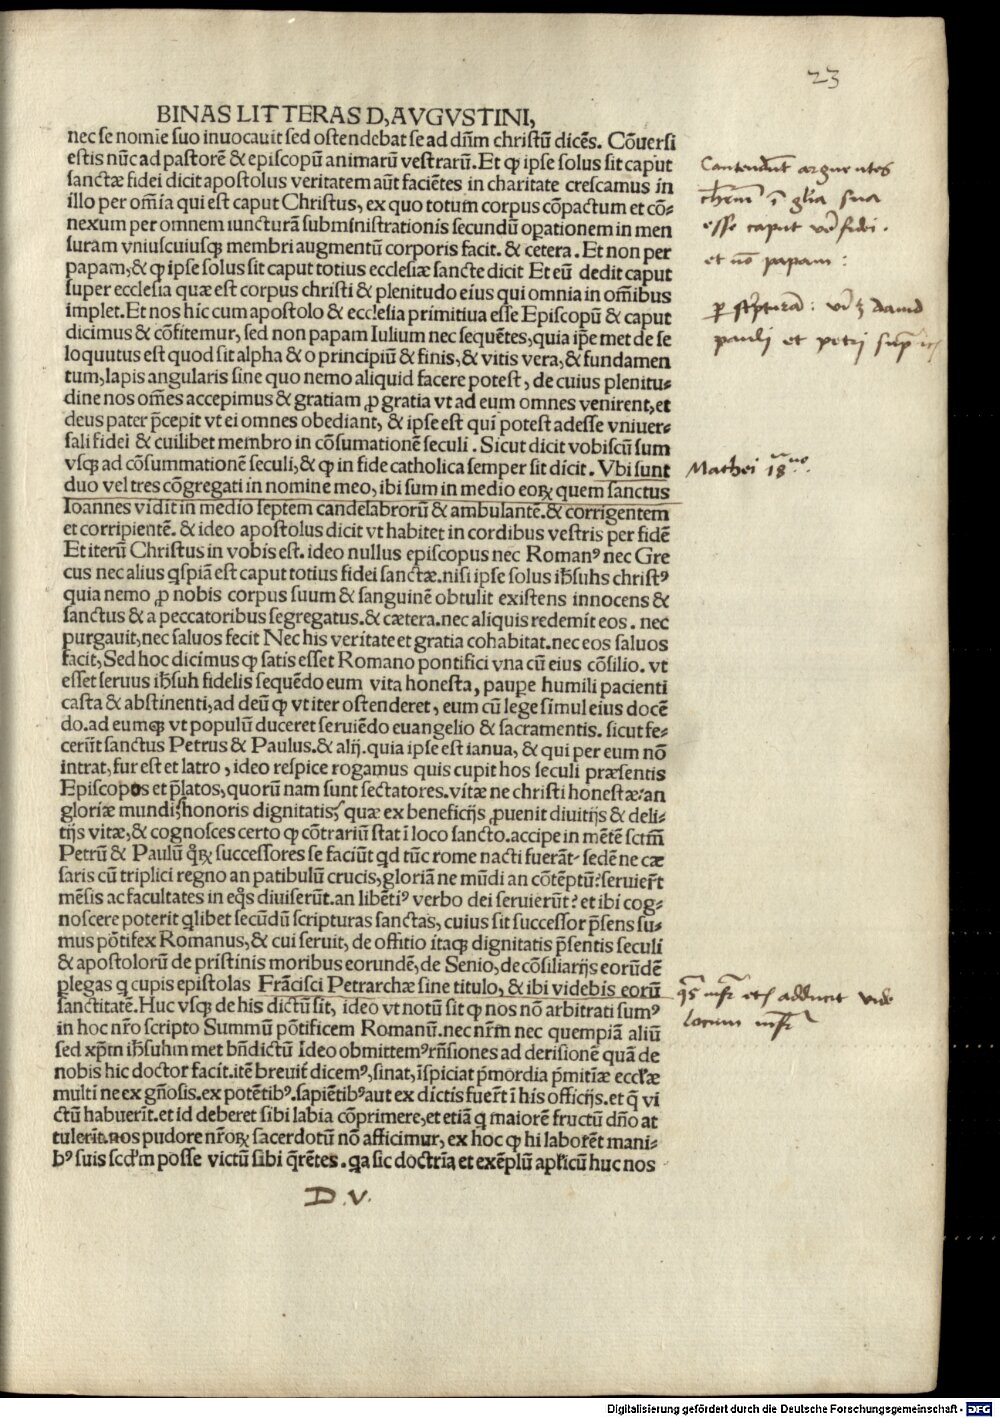 23
BINAS LITTERAS D, AVGVSTINI,
nec se nomīe suo inuocauit sed ostendebat se ad dn̄m christū dicēs. Cōuersi
estis nūc ad pastorē & episcopū animarū vestrarū. Et ꝙ ipse solus sit caput
sanctæ fidei dicit apostolus veritatem aūt faciētes in charitate crescamus in
illo per om̄ia qui est caput Christus, ex quo totum corpus cōpactum et cō⸗
nexum per omnem iuncturā submſnistrationis secundū oꝑationem in men
suram vniuscuiusqꝫ membri augmentū corporis facit. & cetera. Et non per
papam, & ꝙ ipse solus sit caput totius ecclesiæ sancte dicit Et eū dedit caput
super ecclesia quæ est corpus christi & plenitudo eius qui omnia in om̄ibus
implet. Et nos hic cum apostolo & ecclesia primitiua esse Episcopū & caput
dicimus & cōfitemur, sed non papam Iulium nec sequētes, quia ip̄e met de se
loquutus est quod sit alpha & o principiū & finis, & vitis vera, & fundamen
tum, lapis angularis sine quo nemo aliquid facere potest, de cuius plenitu⸗
dine nos om̄es accepimus & gratiam ꝓ gratia vt ad eum omnes venirent, et
deus pater p̄cepit vt ei omnes obediant, & ipse est qui potest adesse vniuer⸗
sali fidei & cuilibet membro in cōsumationē seculi. Sicut dicit vobiscū sum
vsqꝫ ad cōsummationē seculi, & ꝙ in fide catholica semper sit dicit. Vbi sunt
duo vel tres cōgregati in nomine meo, ibi sum in medio eoꝝ quem sanctus
Ioannes vidit in medio septem candelabrorū & ambulantē. & corrigentem
et corripientē. & ideo apostolus dicit vt habitet in cordibus vestris per fidē
Et iterū Christus in vobis est. ideo nullus episcopus nec Romanꝰ nec Gre
cus nec alius qspiā est caput totius fidei sanctæ. nisi ipse solus ih̄suhs christꝰ
quia nemo ꝓ nobis corpus suum & sanguinē obtulit existens innocens &
sanctus & a peccatoribus segregatus. & cætera. nec aliquis redemit eos. nec
purgauit, nec saluos fecit Nec his veritate et gratia cohabitat. nec eos saluos
facit, Sed hoc dicimus ꝙ satis esset Romano pontifici vna cū eius cōsilio. vt
esset seruus ih̄suh fidelis sequēdo eum vita honesta, pauꝑe humili pacienti
casta & abstinenti, ad deū ꝙ vt iter ostenderet, eum cū lege simul eius docē
do. ad eumqꝫ vt populū duceret seruiēdo euangelio & sacramentis. sicut fe⸗
cerūt sanctus Petrus & Paulus. & alij. quia ipse est ianua, & qui per eum nō
intrat, fur est et latro, ideo respice rogamus quis cupit hos seculi præsentis
Episcopos et p̄latos, quorū nam sunt sectatores. vitæ ne christi honestæ: an
gloriæ mundi, honoris dignitatis, quæ ex beneficijs ꝓuenit diuitijs & deli⸗
tijs vitæ, & cognosces certo ꝙ cōtrariū stat ī loco sancto. accipe in mētē sctm̄
Petrū & Paulū qꝝ successores se faciūt qd tūc rome nacti fuerāt sedē ne cæ
saris cū triplici regno an patibulū crucis, gloriā ne mūdi an cōtēptū: seruier̄t
mēsis ac facultates in eq̄s diuiserūt. an libētiꝰ verbo dei seruierūt? et ibi cog⸗
noscere poterit qlibet secūdū scripturas sanctas, cuius sit successor p̄sens su⸗
mus pōtifex Romanus, & cui seruit, de offitio itaqꝫ dignitatis p̄sentis seculi
& apostolorū de pristinis moribus eorundē, de Senio, de cōsiliarijs eorūdē
ꝑlegas q cupis epistolas Frācisci Petrarchæ sine titulo, & ibi videbis eorū
sanctitatē. Huc vsqꝫ de his dictū sit, ideo vt notū sit ꝙ nos nō arbitrati sumꝰ
in hoc nr̄o scripto Summū pōtificem Romanū. nec nr̄m nec quempiā aliū
sed xp̄m ih̄suhm met bn̄dictū Ideo obmittemꝰ rn̄siones ad derisionē quā de
nobis hic doctor facit. itē breuit̄ dicemꝰ, sinat, īspiciat p̄mordia p̄mitīæ eccl̄æ
multi ne ex gn̄osis. ex potētibꝰ. sapiētibꝰ aut ex dictis fuer̄t ī his officijs. et q̄ vi
ctū habuerīt. et id deberet sibi labia cōprimere, et etiā q maiorē fructū dn̄o at
tulerīt. nos pudore nr̄oꝝ sacerdotū nō afficimur, ex hoc ꝙ hi laborēt mani⸗
bꝰ suis scd̄m posse victū sibi q̄rētes. qa sic doctrīa et exēplū apl̄icū huc nos
D. V.
Contendūt arguentes
esse caput
et nō papam:
pauli et petri
Mathei 18
adducit vide
locum
Digitalisierung gefördert durch die Deutsche Forschungsgemeinschaft - DFG